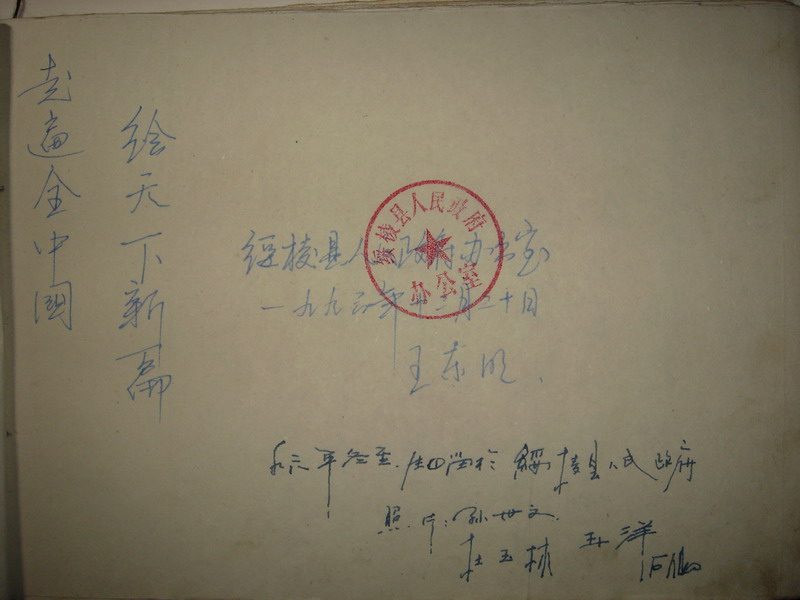 走遍全中國
绘天下新篇
绥棱县人民政府
办公室
绥棱县人民政府办公室
一九九六年十二月二十日
王东明.
於綏棱县人民政府
照片:孙世文
杜玉林 王洋